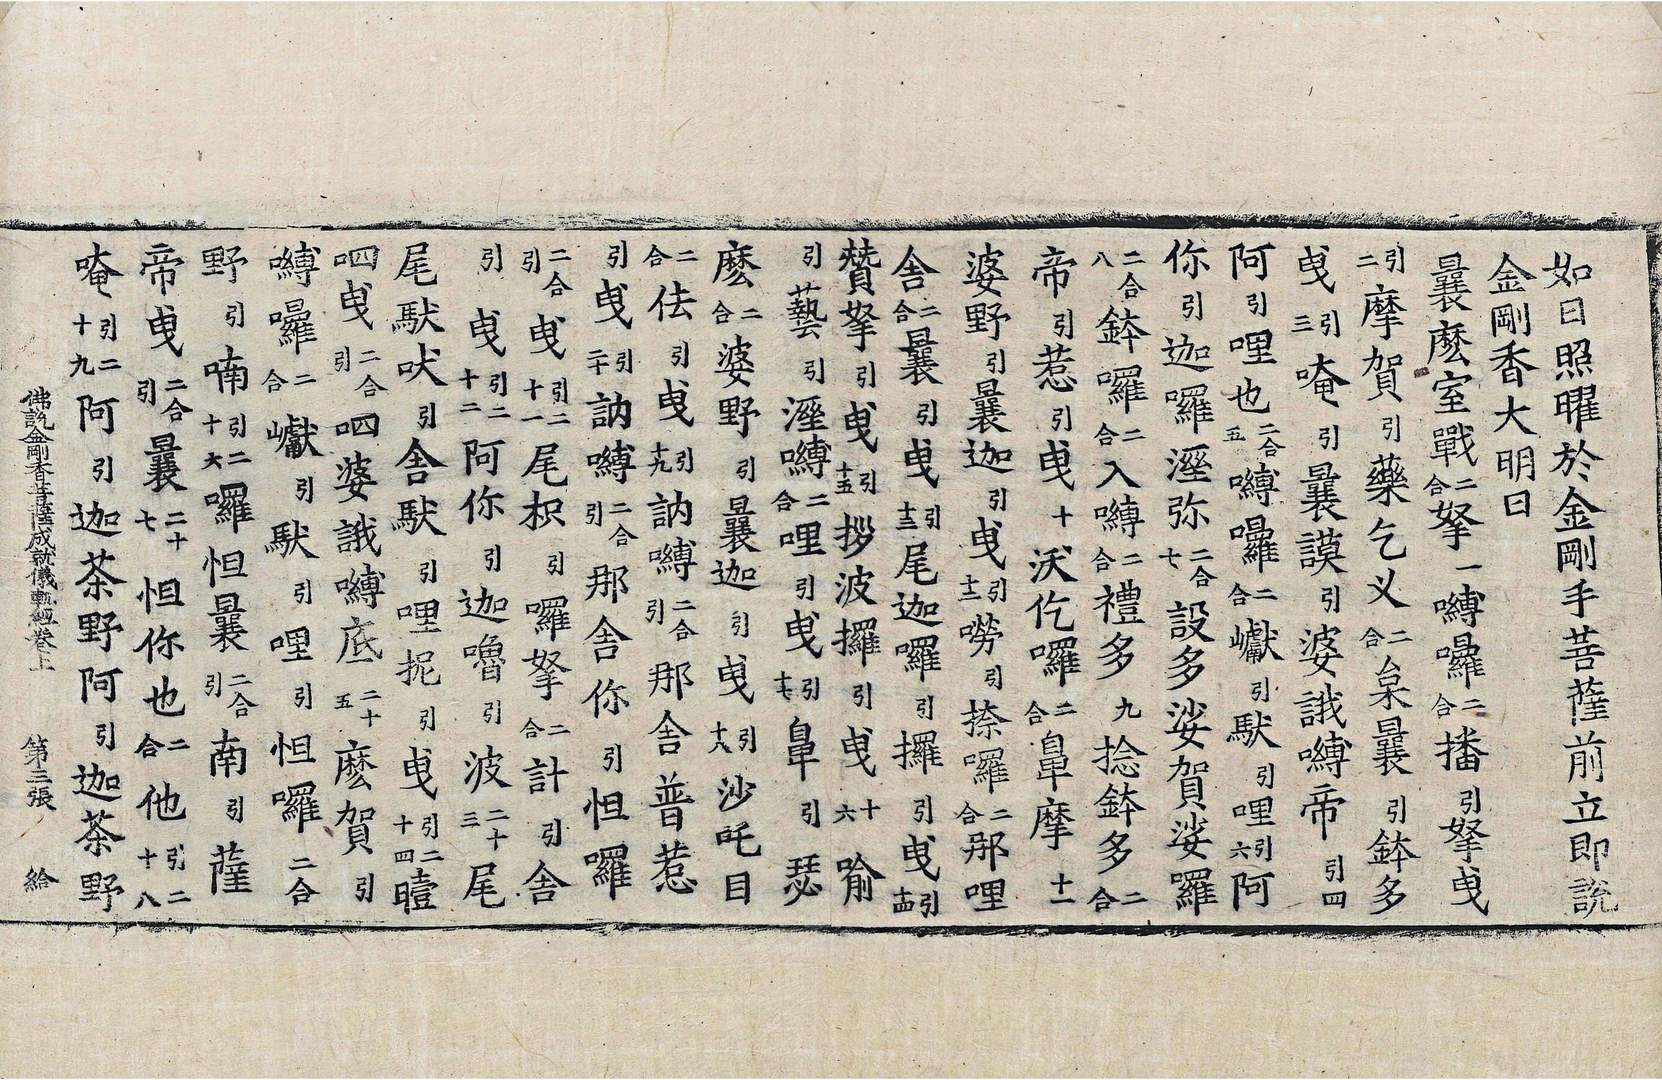 如日照曜於金剛手菩薩前立即說
金剛香大明曰
曩麽室戰二合拏一嚩囉二合播引拏曳
引二摩賀引藥乞叉二合枲曩引鉢多
曳引三唵引曩謨引婆誐嚩帝引四
阿引哩也二合五嚩囉二合巘引馱引哩引六阿
你引迦囉溼弥二合七設多娑賀娑囉
二合八鉢囉二合入嚩二合禮多九捻鉢多二合
帝引惹引曳十沃仡囉二合皐摩十一
婆野引曩迦引曳引十二嘮引捺囉二合那哩
舍二合曩引曳引十三尾迦囉引攞引曳引十四
贊拏引曳引十五拶波攞引曳十六喻
引藝引溼嚩二合哩引曳引十七皐引瑟
麽二合婆野引曩迦引曳引十八沙吒目
二合佉引曳引十九訥嚩二合引那舍普惹
引曳引二十訥嚩二合引那舍你引怛囉
二合引曳引二十一尾枳引囉拏二合計引舍
引曳引二十二阿你引迦嚕引波二十三尾
尾馱吠引舍馱引哩抳引曳引二十四曀
呬曳二合引呬婆誐嚩底二十五麽賀引
嚩囉二合巘引馱引哩引怛囉二合
野引喃引二十六囉怛曩二合引南引薩
帝曳二合引曩二十七怛你也二合他引二十八
唵引二十九阿引迦茶野阿引迦茶野
佛說金剛香菩薩成就儀軌經卷上　第三張　給